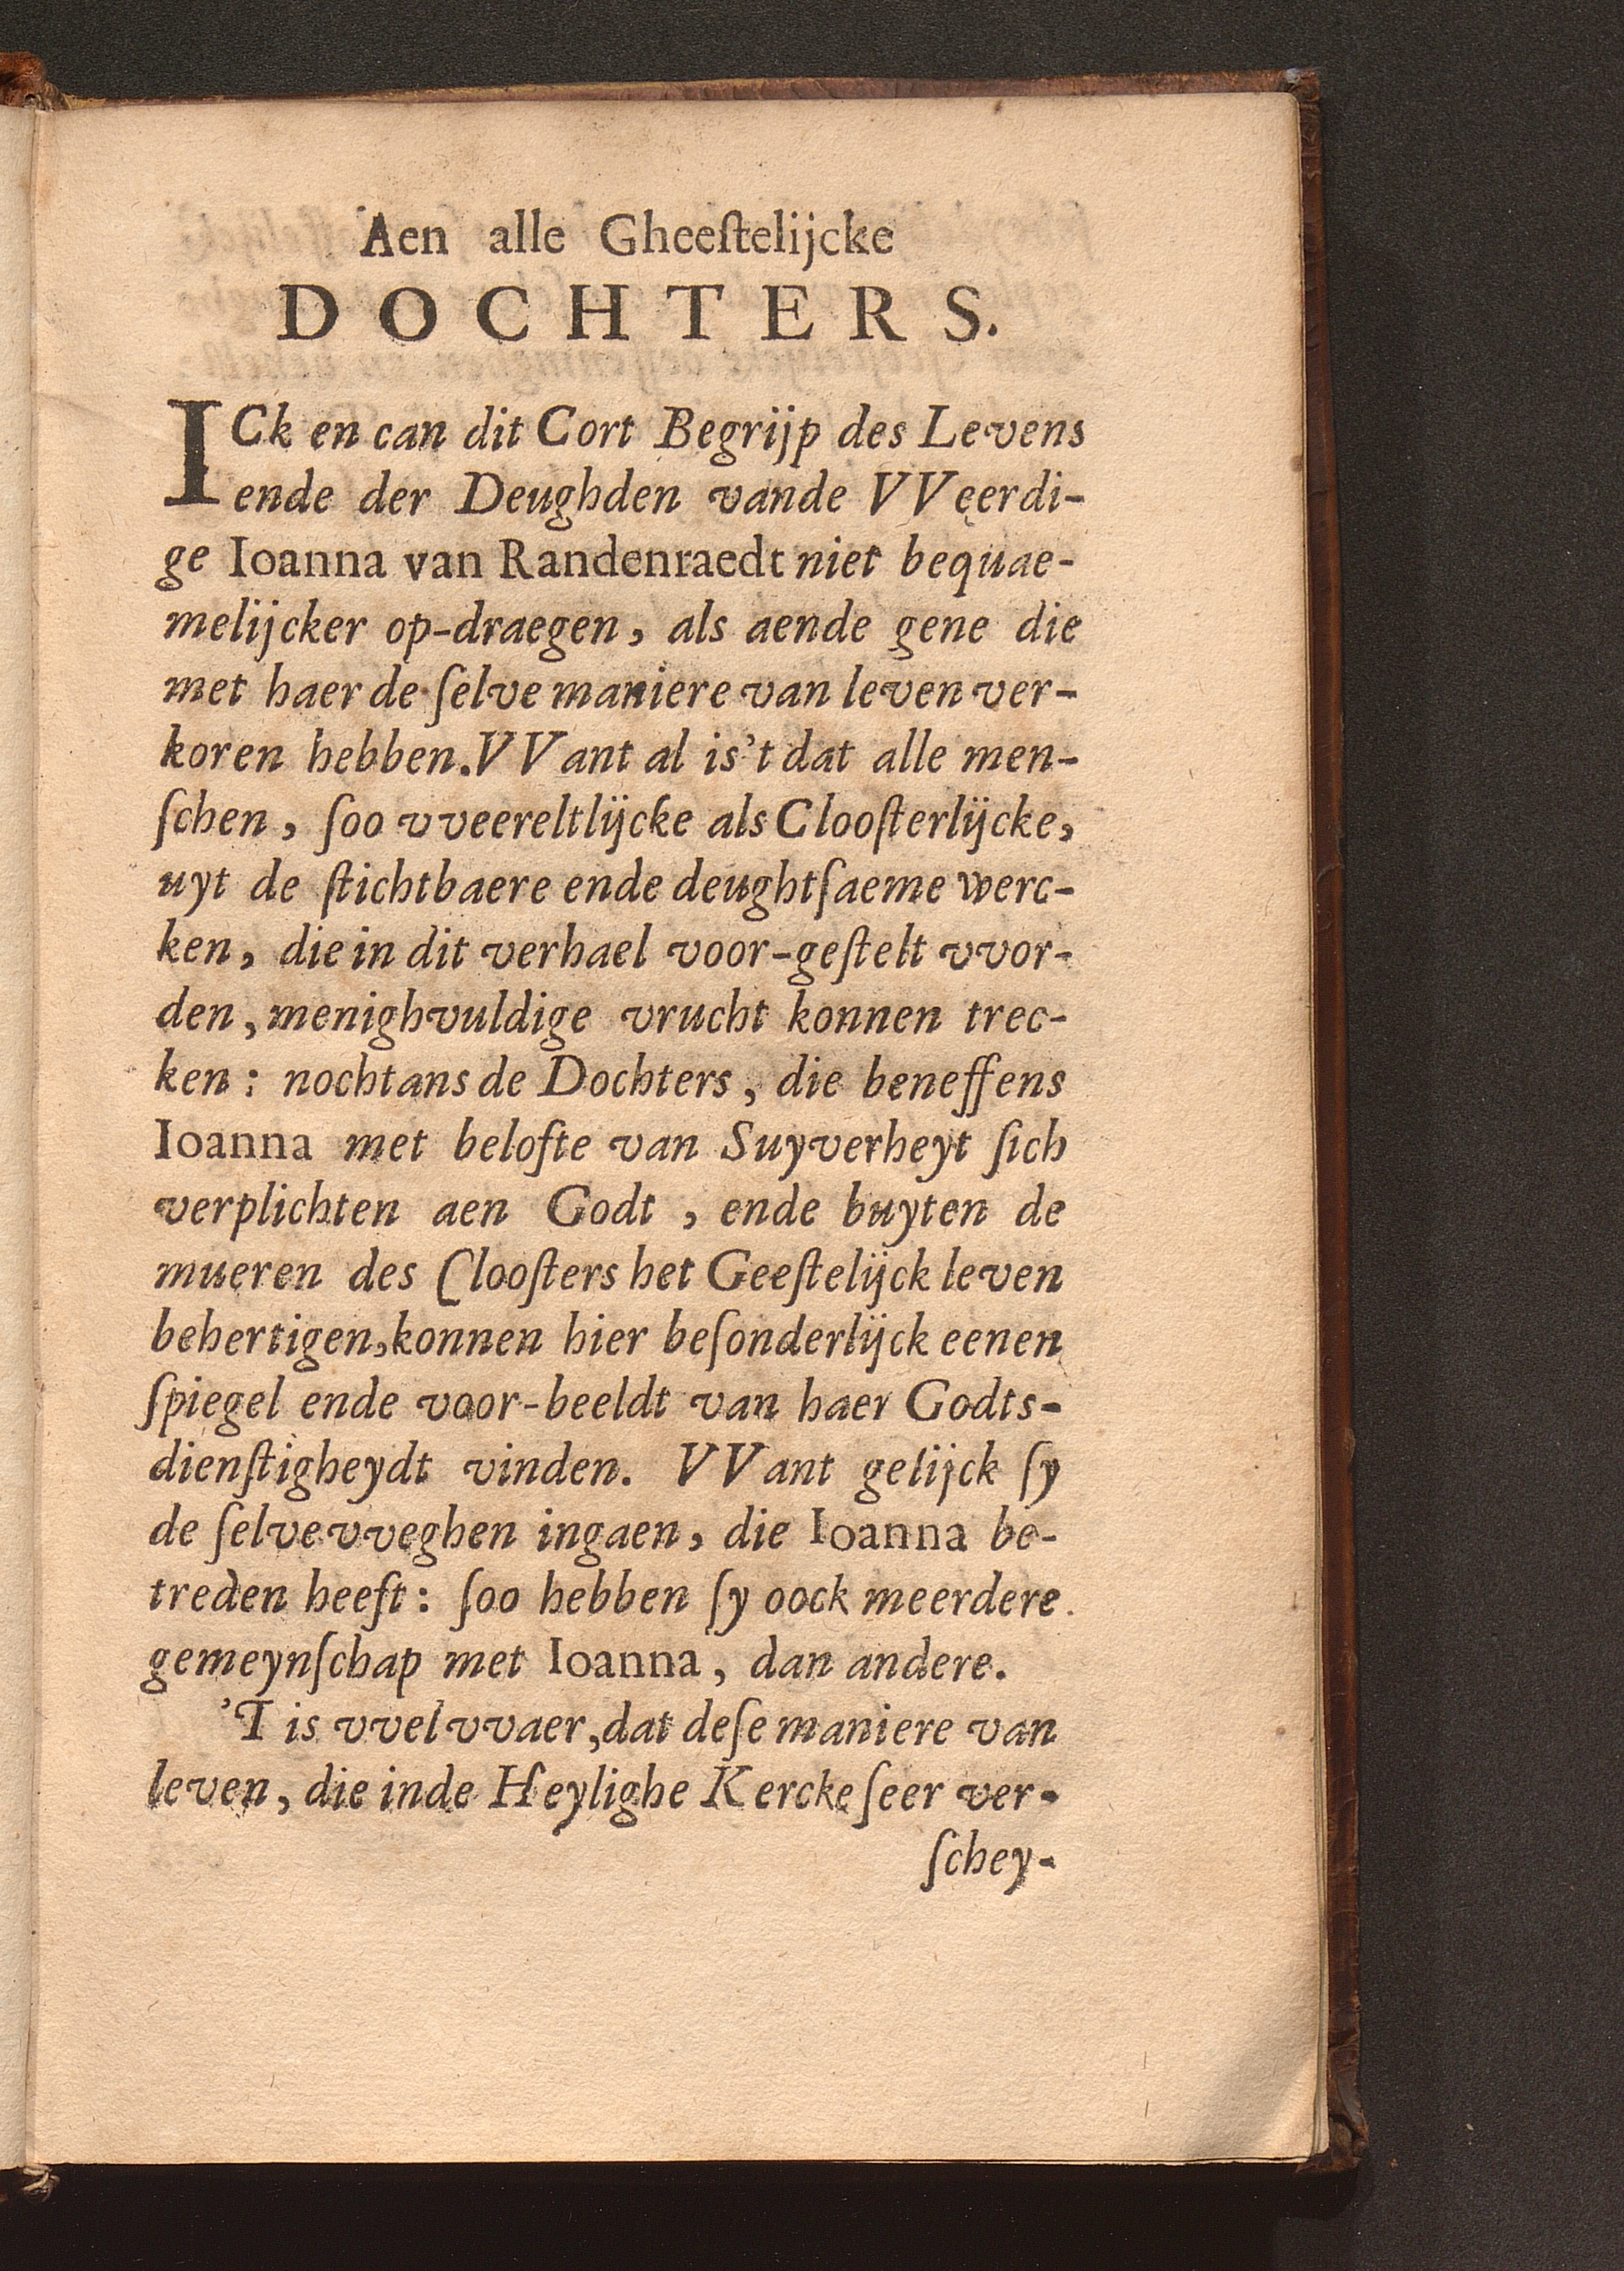 Aen alle Gheeſtelijcke
DOCHTERS.
ICk en can dit Cort Begrijp des Levens
ende der Deughden vande VVeerdi-
ge Ioanna van Randenraedt niet bequae-
melijcker op-draegen, als aende gene die
met haer de ſelve maniere van leven ver-
koren hebben. VVant al is't dat alle men-
ſchen, ſoo vveereltlijcke als Clooſterlijcke,
uyt de ſtichtbaere ende deughtſaeme werc-
ken, die in dit verhael voor-geſtelt vvor-
den, menighvuldige vrucht konnen trec-
ken: nochtans de Dochters, die beneffens
Ioanna met belofte van Suyverheyt ſich
verplichten aen Godt, ende buyten de
mueren des Clooſters het Geeſtelijck leven
behertigen, konnen hier beſonderlijck eenen
ſpiegel ende voor-beeldt van haer Godts-
dienſtigheydt vinden. VVant gelijck ſy
de ſelve vveghen ingaen, die Ioanna be-
treden heeft: ſoo hebben ſy oock meerdere
gemeynſchap met Ioanna, dan andere.
'T is vvel vvaer, dat deſe maniere van
leven, die inde Heylighe Kercke ſeer ver-
ſchey-